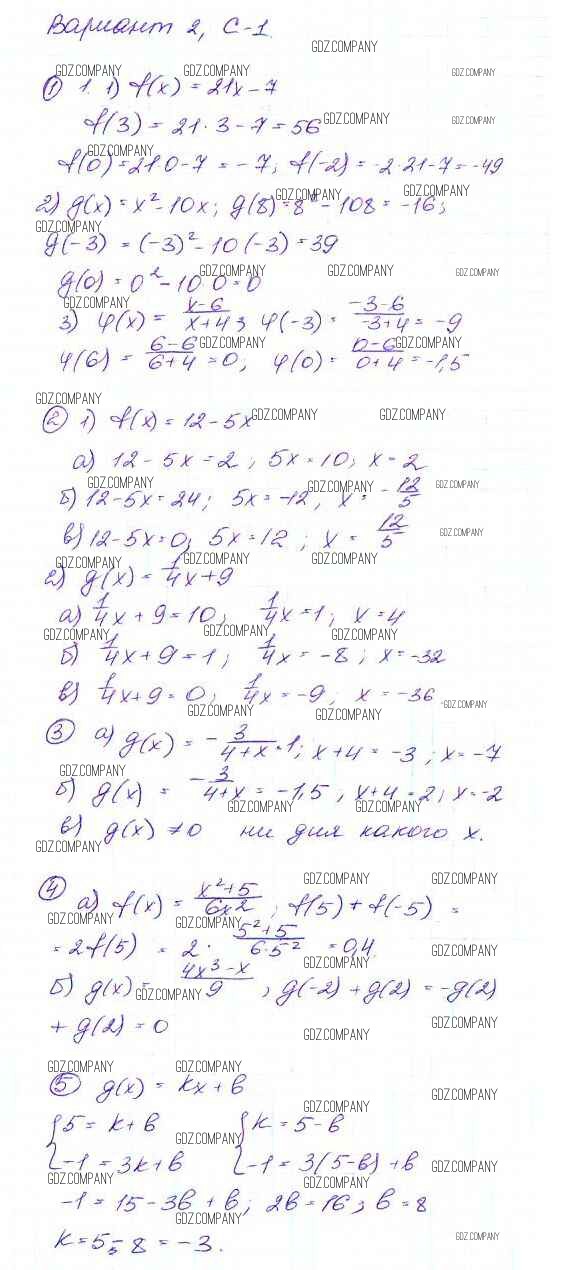 Вариант 2, С-1.
① 1. 1) f(x) = 21x - 7
f(3) = 21·3 - 7 = 56
f(0) = 21·0 - 7 = -7; f(-2) = -2·21 - 7 = -49
2) g(x) = x² - 10x; g(8) = 8² - 108 = -16;
g(-3) = (-3)² - 10(-3) = 39
g(0) = 0² - 10·0 = 0
3) φ(x) = (x-6)/(x+4); φ(-3) = (-3-6)/(-3+4) = -9
φ(6) = (6-6)/(6+4) = 0; φ(0) = (0-6)/(0+4) = -1,5
② 1) f(x) = 12 - 5x
а) 12 - 5x = 2; 5x = 10; x = 2
б) 12 - 5x = 24; 5x = -12, x = -12/5
в) 12 - 5x = 0; 5x = 12; x = 12/5
2) g(x) = 1/4x + 9
а) 1/4x + 9 = 10; 1/4x = 1; x = 4
б) 1/4x + 9 = 1; 1/4x = -8; x = -32
в) 1/4x + 9 = 0; 1/4x = -9; x = -36
③ а) g(x) = -3/(4+x) = 1; x + 4 = -3; x = -7
б) g(x) = -3/(4+x) = -1,5, x + 4 = 2; x = -2
в) g(x) ≠ 0 ни для какого x.
④ а) f(x) = (x²+5)/(6x²); f(5) + f(-5) =
= 2f(5) = 2·(5²+5)/(6·5²) = 0,4
б) g(x) = (4x³-x)/9; g(-2) + g(2) = -g(2)
+ g(2) = 0
⑤ g(x) = kx + b
{5 = k + b {k = 5 - b
{-1 = 3k + b {-1 = 3(5 - b) + b
-1 = 15 - 3b + b; 2b = 16; b = 8
k = 5 - 8 = -3.